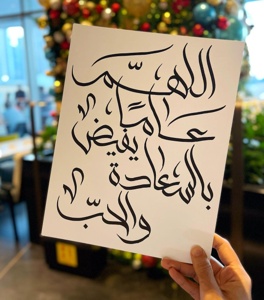 اللهمّ
عامًا
يفيض
بالسعادة
والحبّ